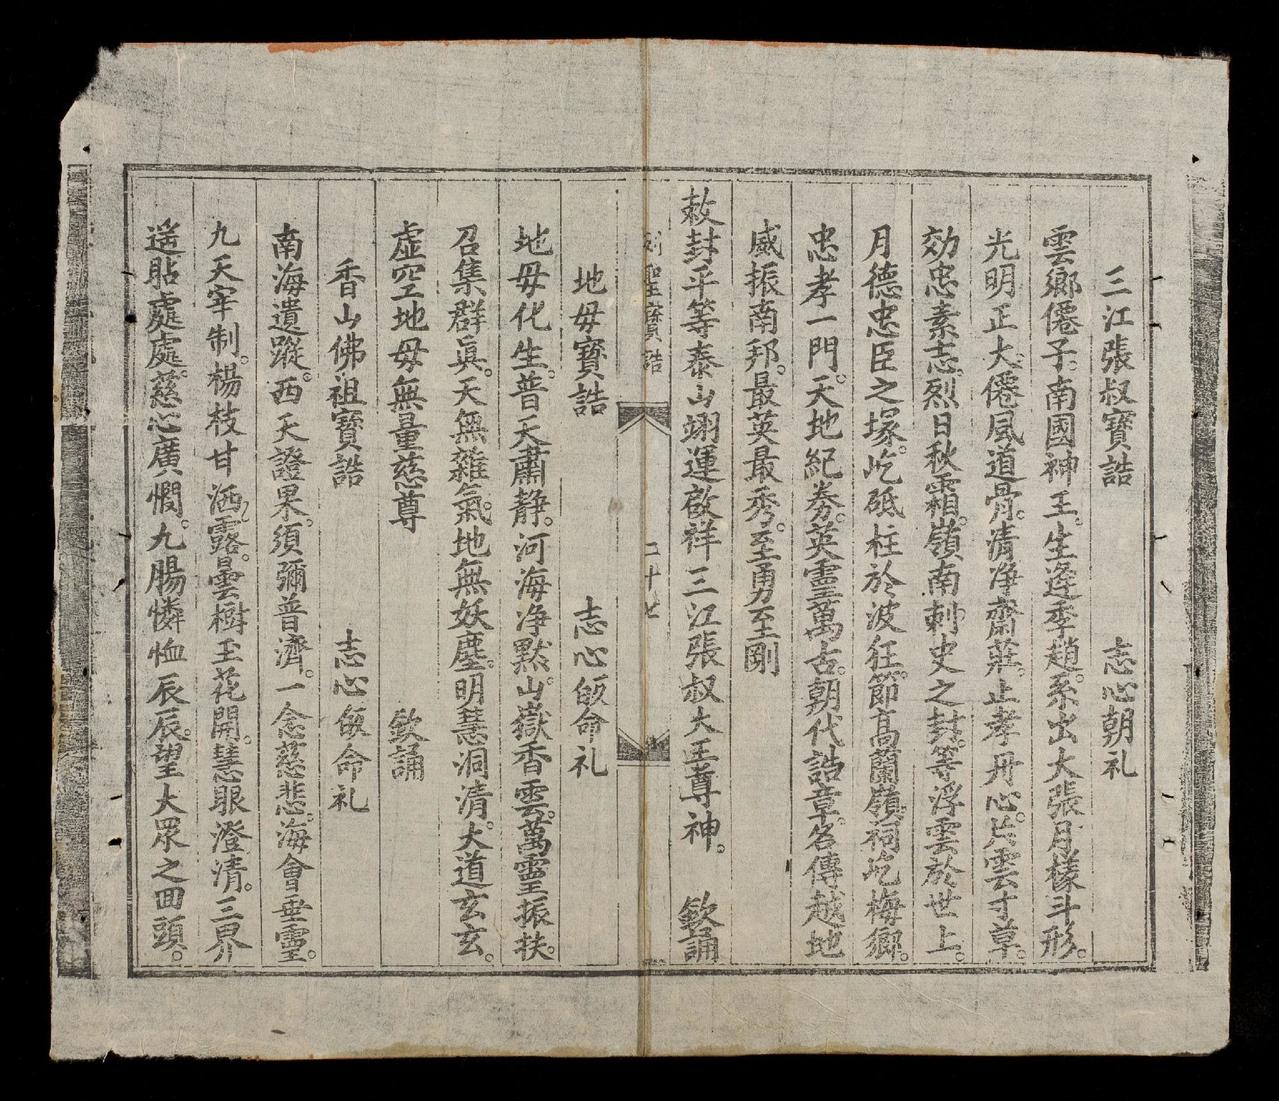 三江張叔寳誥　志心朝礼
雲鄉僊子。南國神王。生逢季趙。系出大張。月樣斗形。
光明正大。僊風道骨。清淨齋莊。止孝丹心。片雲寸草。
効忠素志。烈日秋霜。嶺南刺史之封。等浮雲於世上。
月德忠臣之塚。屹砥柱於波狂。節髙蘭嶺。祠屹梅鄉。
忠孝一門。天地紀劵。英靈萬古。朝代誥章。名傳越地
威振南邦。最英最秀。至勇至剛
敕封平等泰山翊運啟祥三江張叔大王尊神。　欽誦
列聖寳誥　二十七
地母寳誥　志心皈命礼
地母化生。普天肅静。河海净黙。山嶽香雲。萬靈振扶。
召集群眞。天無雜氣。地無妖塵。明慧洞清。大道玄玄。
虛空地母無量慈尊　欽誦
香山佛祖寳誥　志心皈命礼
南海遺蹤。西天證果。須彌普濟。一念慈悲。海會垂靈。
九天宰制。楊枝甘洒露。曇樹玉花開。慧眼澄清。三界
遥貼處處。慈心廣憫。九腸憐恤辰辰。望大眾之回頭。